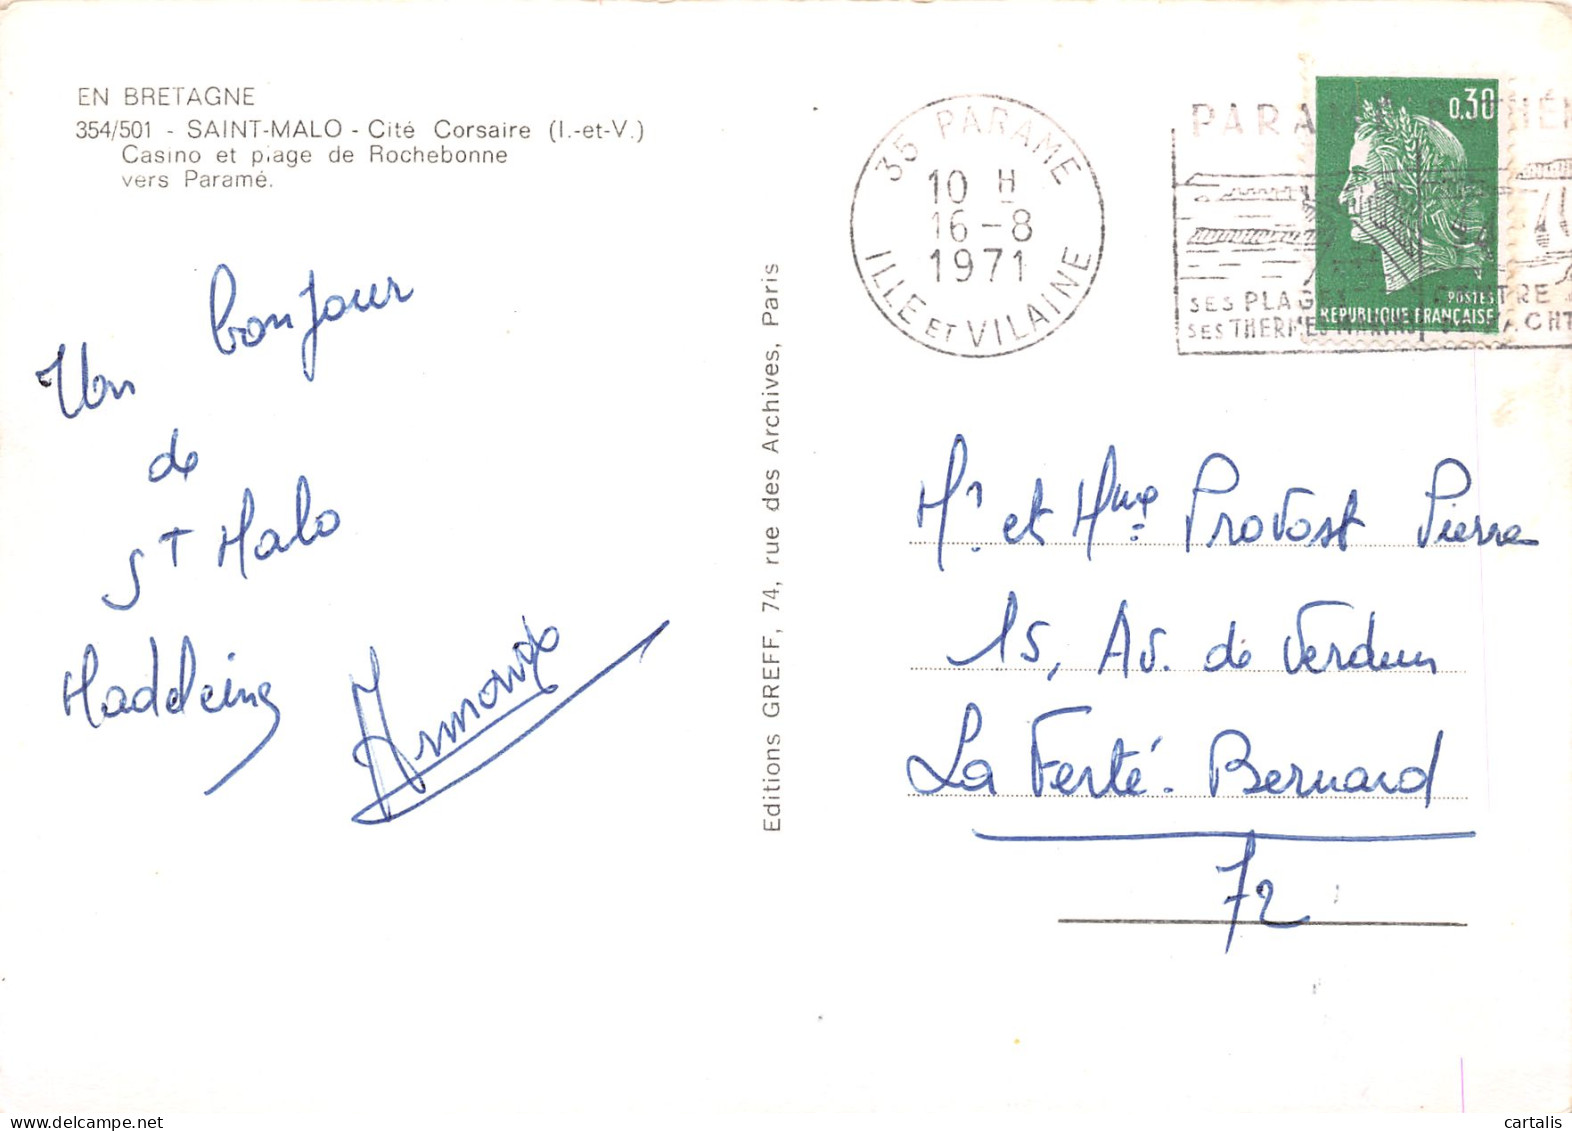 EN BRETAGNE
354/501 - SAINT-MALO - Cité Corsaire (I.-et-V.)
Casino et plage de Rochebonne
vers Paramé.
Un bonjour
de
ST Malo
Maddeine
Armando
Editions GREFF, 74, rue des Archives, Paris
35 PARAME
10 H
16-8
1971
ILLE ET VILAINE
PARAMÉ
SES PLAGES
SES THERMES MARINS
0,30
POSTES
RÉPUBLIQUE FRANÇAISE
Mr. et Mme. Provost Pierre
15, Av. de Verdun
La Ferté. Bernard
72
cartalis
www.delcampe.net